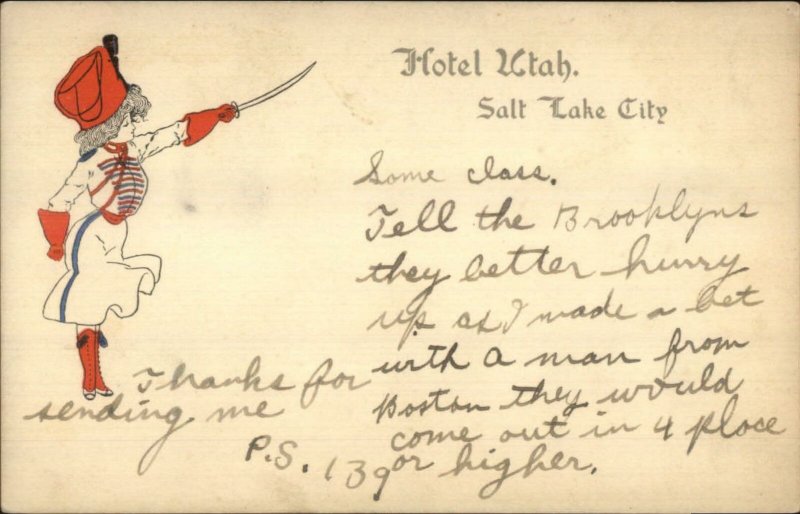 Hotel Utah.
Salt Lake City
Some class.
Tell the Brooklyns
they better hurry
up as I made a bet
with a man from
Boston they would
come out in 4 place
or higher.
Thanks for
sending me
P.S. 139